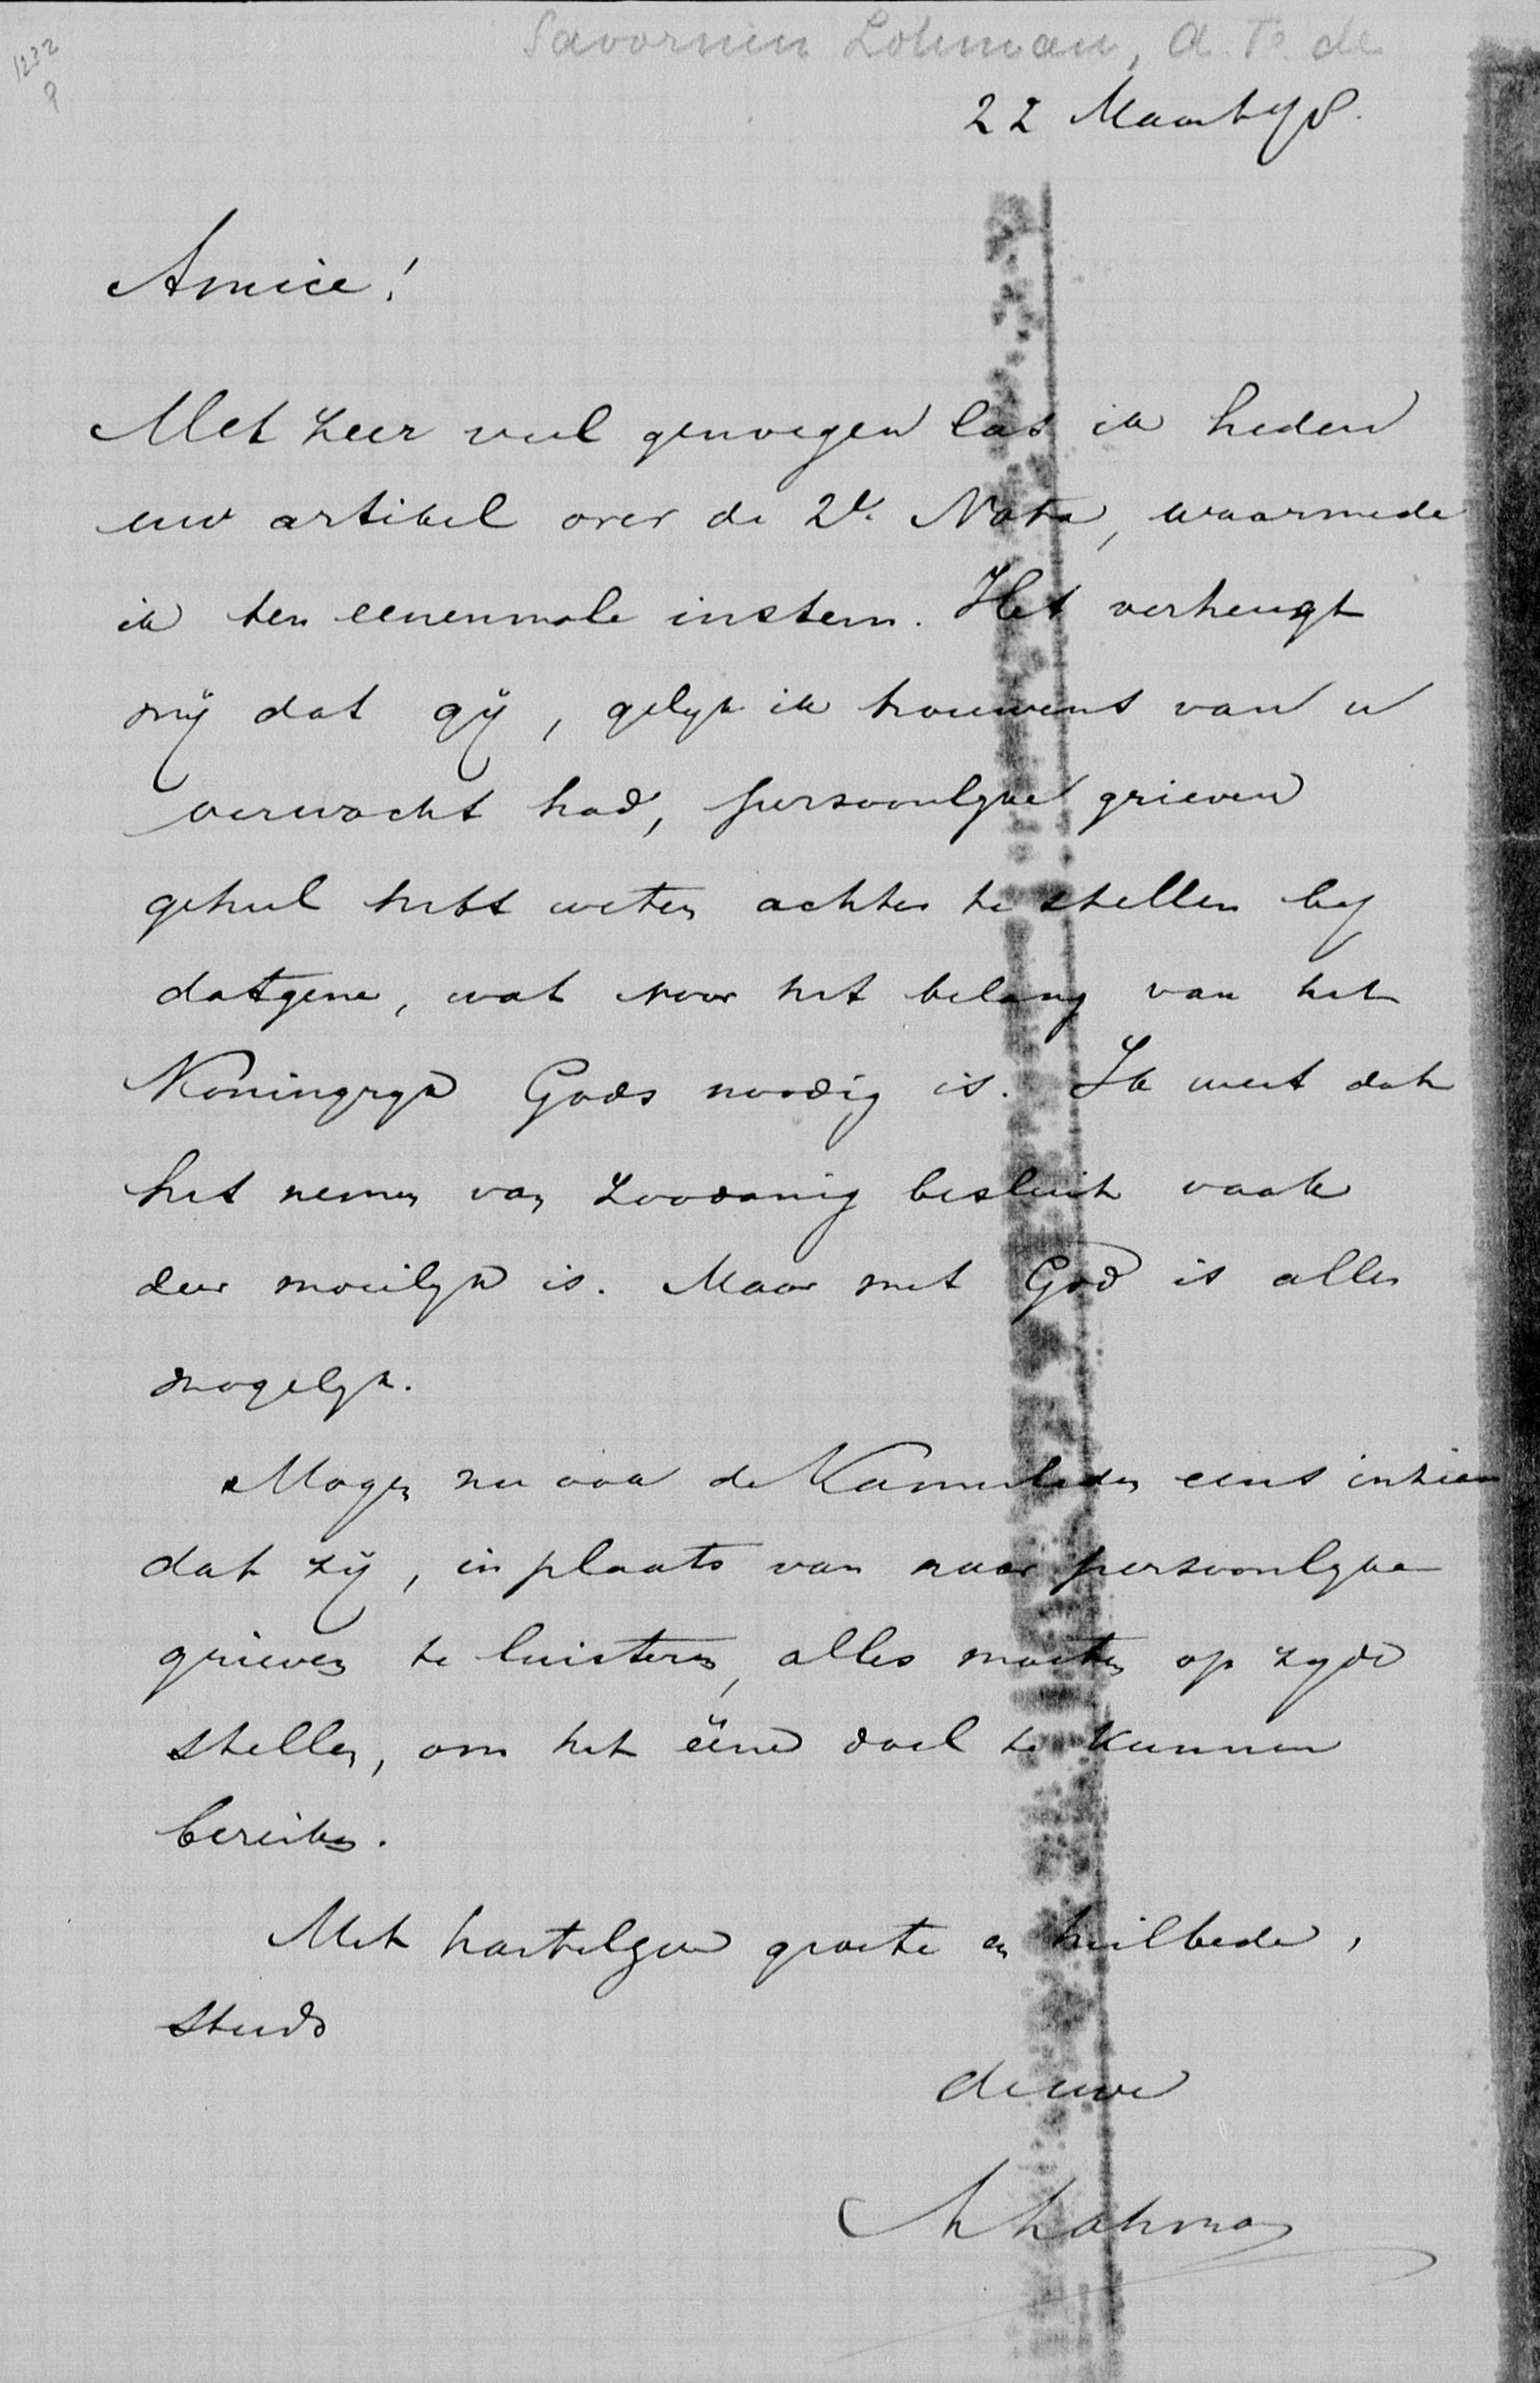 Savornin Lohman, A. F. de
1232
9
22 Maart 98.
Amice!
Met zeer veel genoegen las ik heden
uw artikel over de 2e Nota, waarmede
ik ten eenenmale instem. Het verheugt
mij dat gij, gelijk ik trouwens van u
verwacht had, persoonlijke grieven
geheel hebt weten achter te stellen bij
datgene, wat voor het belang van het
Koningrijk Gods noodig is. Ik weet dat
het nemen van zoodanig besluit vaak
zeer moeilijk is. Maar met God is alles
mogelijk.
Mogen nu ook de Kamerleden eens inzien
dat zij, in plaats van naar persoonlijke
grieven te luisteren, alles moeten op zijde
stellen, om het ééne doel te kunnen
bereiken.
Met hartelijke groete en heilbede,
steeds
de uwe
A Lohman